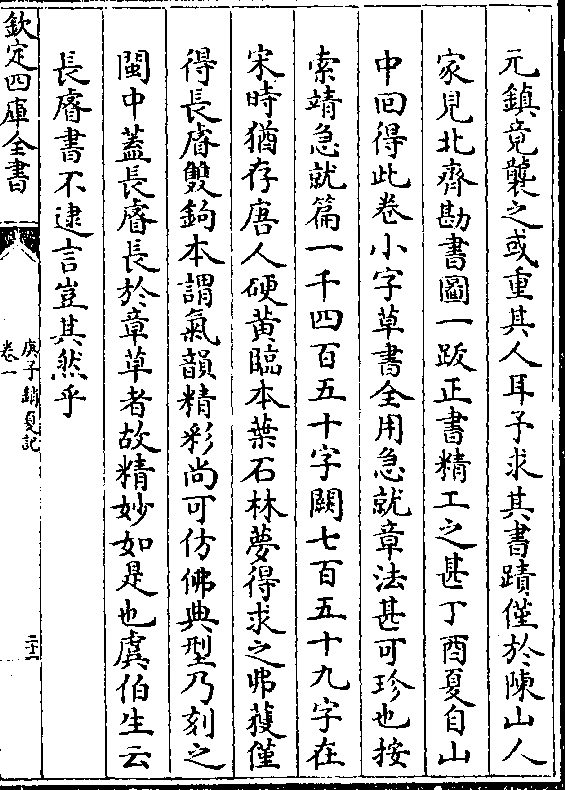 元鎮竟襲之或重其人耳予求其書蹟僅於陳山人
家見北齊勘書圖一跋正書精工之甚丁酉夏自山
中回得此卷小字草書全用急就章法甚可珍也按
索靖急就篇一千四百五十字闕七百五十九字在
宋時猶存唐人硬黃臨本葉石林夢得求之弗獲僅
得長睿雙鉤本謂氣韻精彩尚可仿佛典型乃刻之
閩中蓋長睿長於章草者故精妙如是也虞伯生云
長睿書不逮言豈其然乎
欽定四庫全書
庚子銷夏記
卷一
二十二